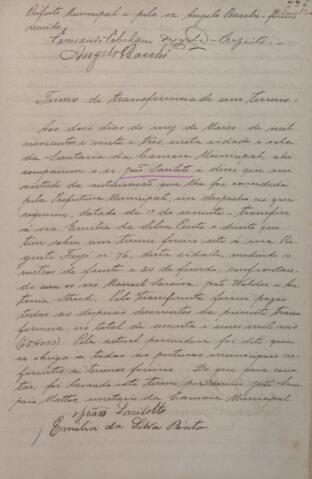 Prefeito Municipal e pelo sr. Angelo Bacchi,
Angelo Bacchi
Termo de transferencia de um terreno:
Aos dois dias do mez de Março de mil
novecentos e vinte e tres, nesta cidade e sala
da Secretaria da Camara Municipal, ahi
compareceu o sr. João e disse que em
virtude da autorização que lhe foi concedida
pela Prefeitura Municipal, em despacho ao que
requereu, datado de 1º do corrente, transfere
á sra Emilia da Silva Pinto o direito que
tem sobre um terreno foreiro sito á rua Re
gente Feijó nº 76, desta cidade, medindo 10
metros de frente e 20 de fundo, confrontan
do com os srs Manoel João e An
tonia Pelo transferente foram pagas
todas as despesas decorrentes da presente trans
ferencia no total de sessenta e cinco mil reis
(65$000) Pela actual possuidora foi dito que
se obriga a todas as posturas municipaes re
ferentes a terrenos foreiros. Do que para cons
tar, foi lavrado este termo, por mim João Sam
paio Mattos, secretario da Camara Municipal
João
Emilia da Silva Pinto